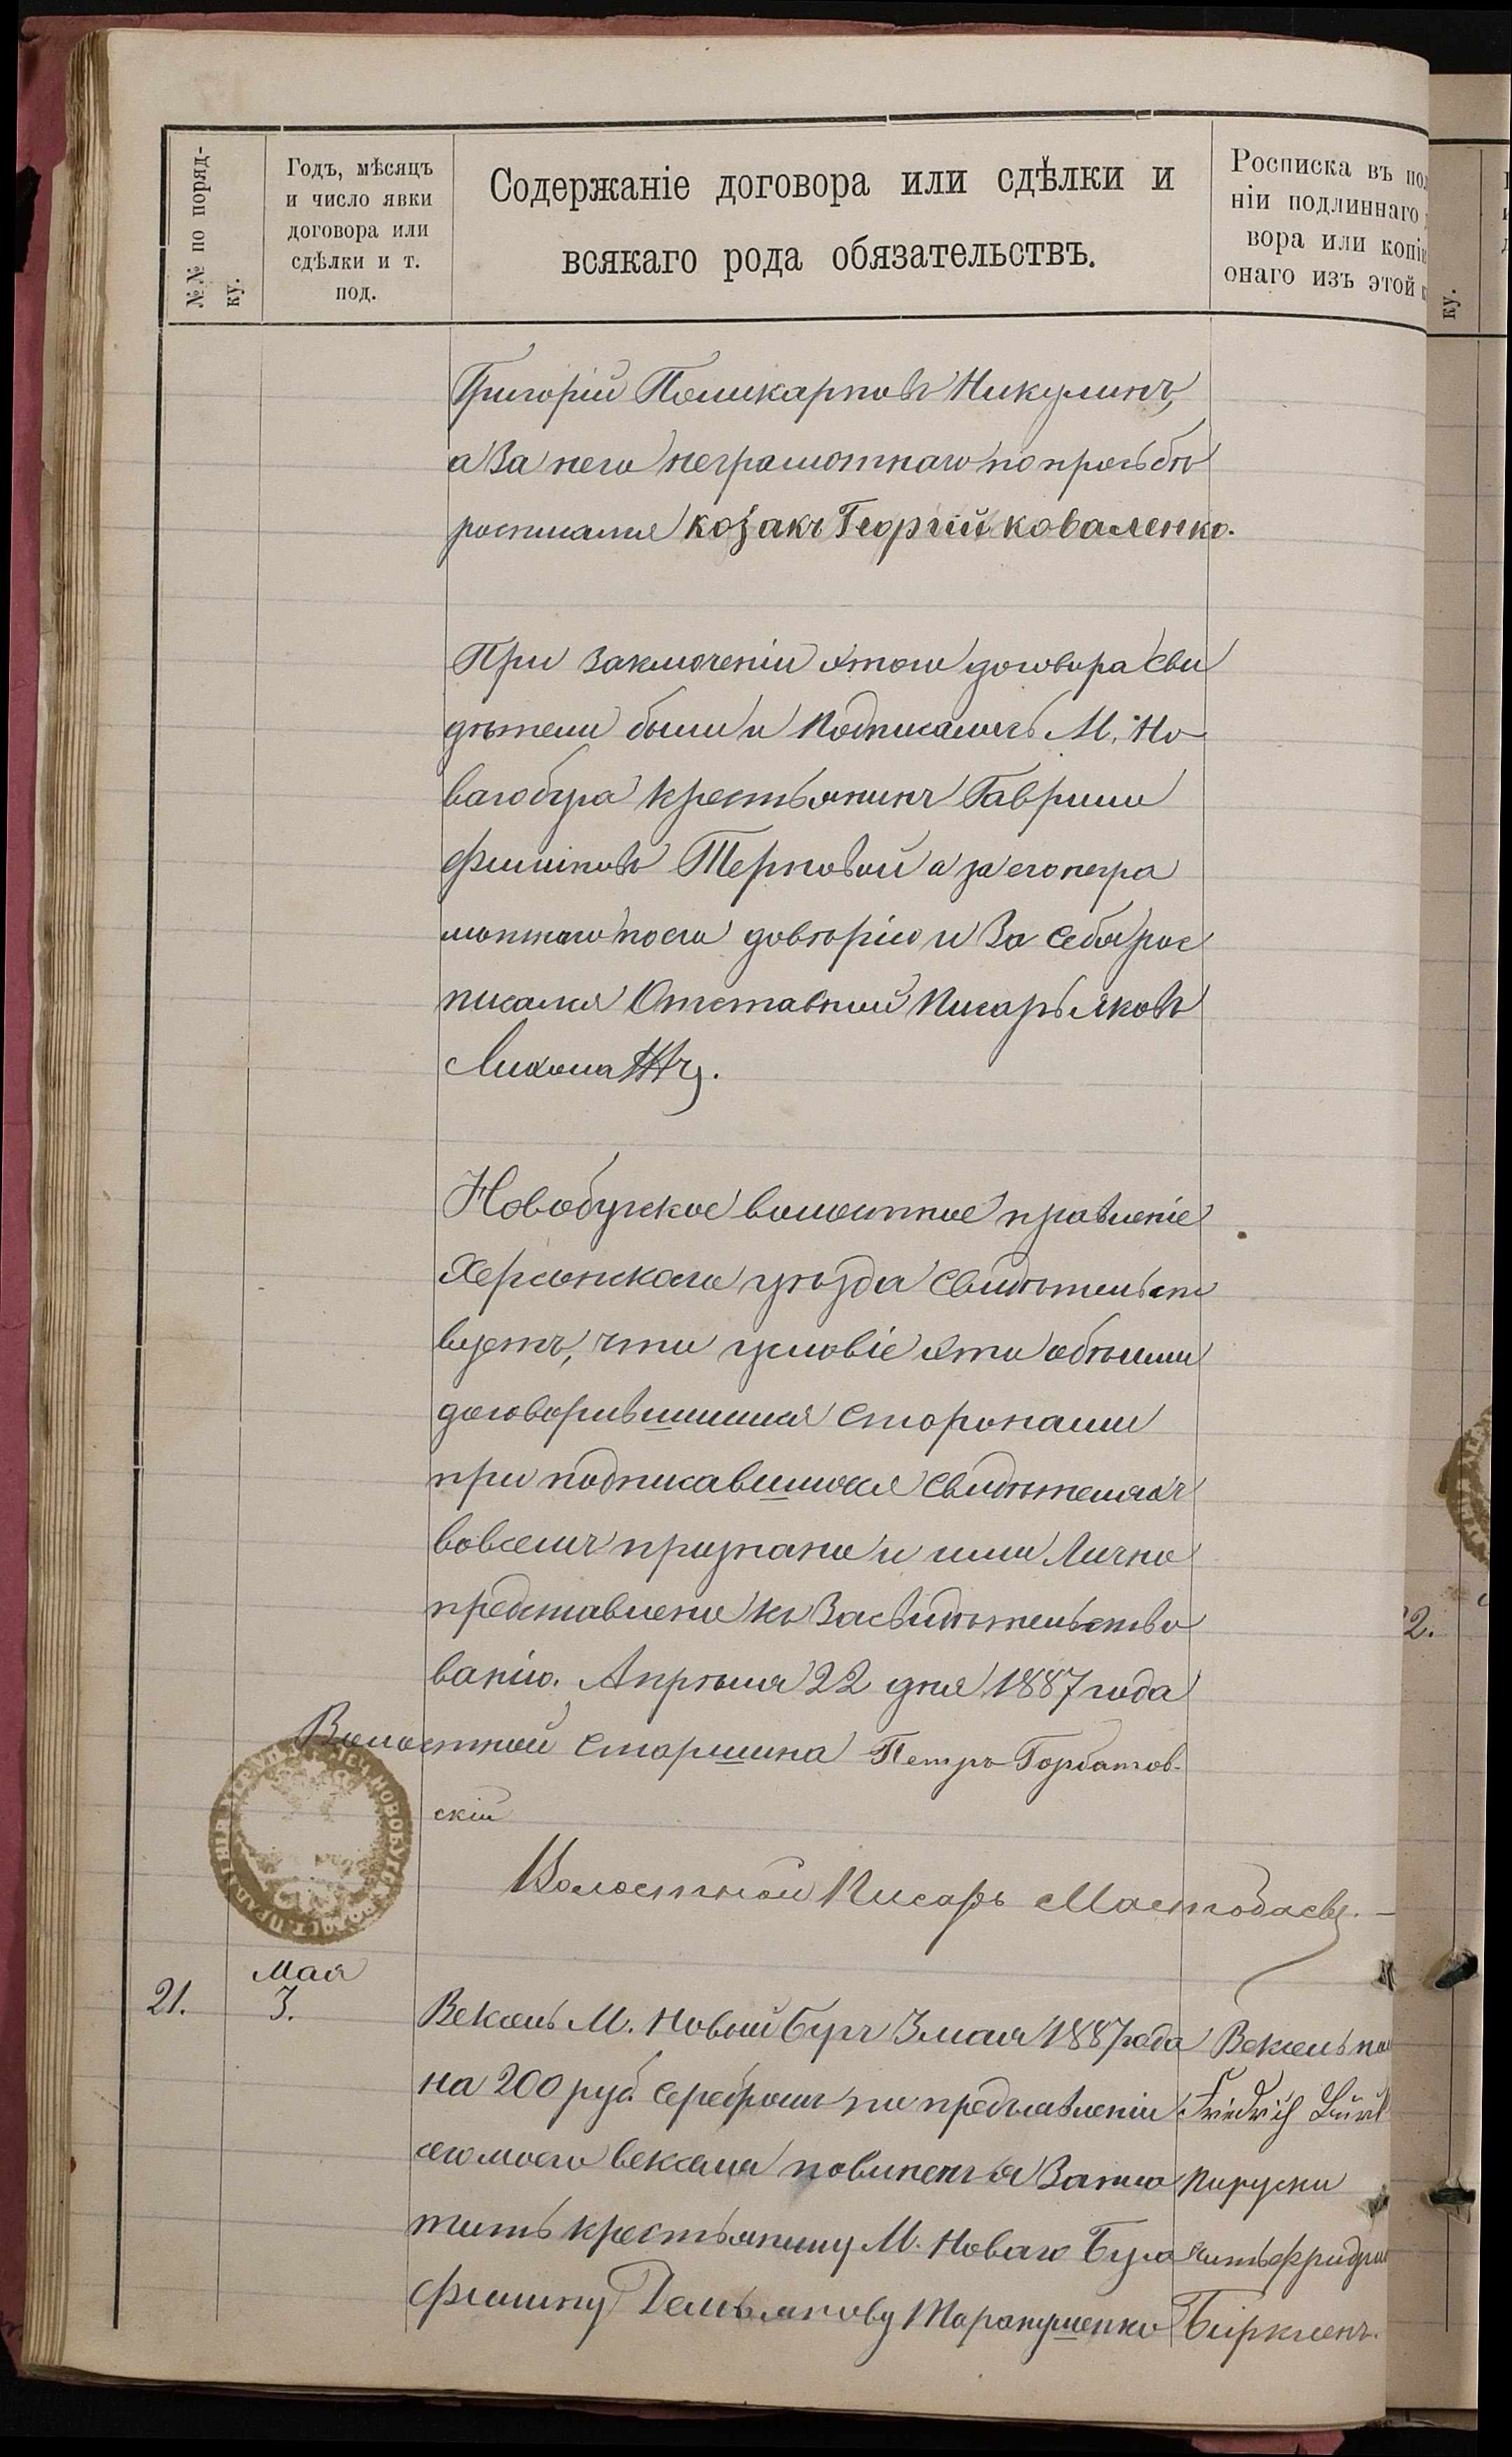 №№ по поряд-
ку.
Годъ, мѣсяцъ
и число явки
договора или
сдѣлки и т.
под.
Содержаніе договора или сдѣлки и
всякаго рода обязательствъ.
Росписка въ пол
ніи подлиннаго
вора или копіи
онаго изъ этой
ку.
Григорій Поликарповъ Никулинъ,
а За него неграмотнаго по просьбѣ
росписался козакъ Георгій коваленко.
При Заключеніи этого договора Сви
дѣтели были и Подписались М. Но-
вагобуга Крестьянинъ Гавриил
Филиповъ Терновой а за его негра
мотнаго по его довѣрію и За Себя рос
писался Отставный Писарь Яковъ
Новобугское волостное правленіе
Херсонскаго уѣзда Свидѣтельст
вуетъ, что условіе это обѣими
договорившимися Сторонами
при подписавшихся Свидѣтеляхъ
вовсемъ признано и ими Лично
представлено къ Засвидѣтельство
ванію. Апрѣля 22 дня 1887 года
Волостной Старшина Петръ Горбатов-
скій
Волостной Писарь
21.
Мая
3.
Вексель М. Новый Бугъ 3 мая 1887 года
на 200 руб. Серебромъ по предъявленіи
сего моего векселя повиненъ я Запла
тить крестьянину М. Новаго Буга
Филипу Демьянову Таранушенко
Вексель пол
Friedrich
Поруски
Биркленъ.
2.